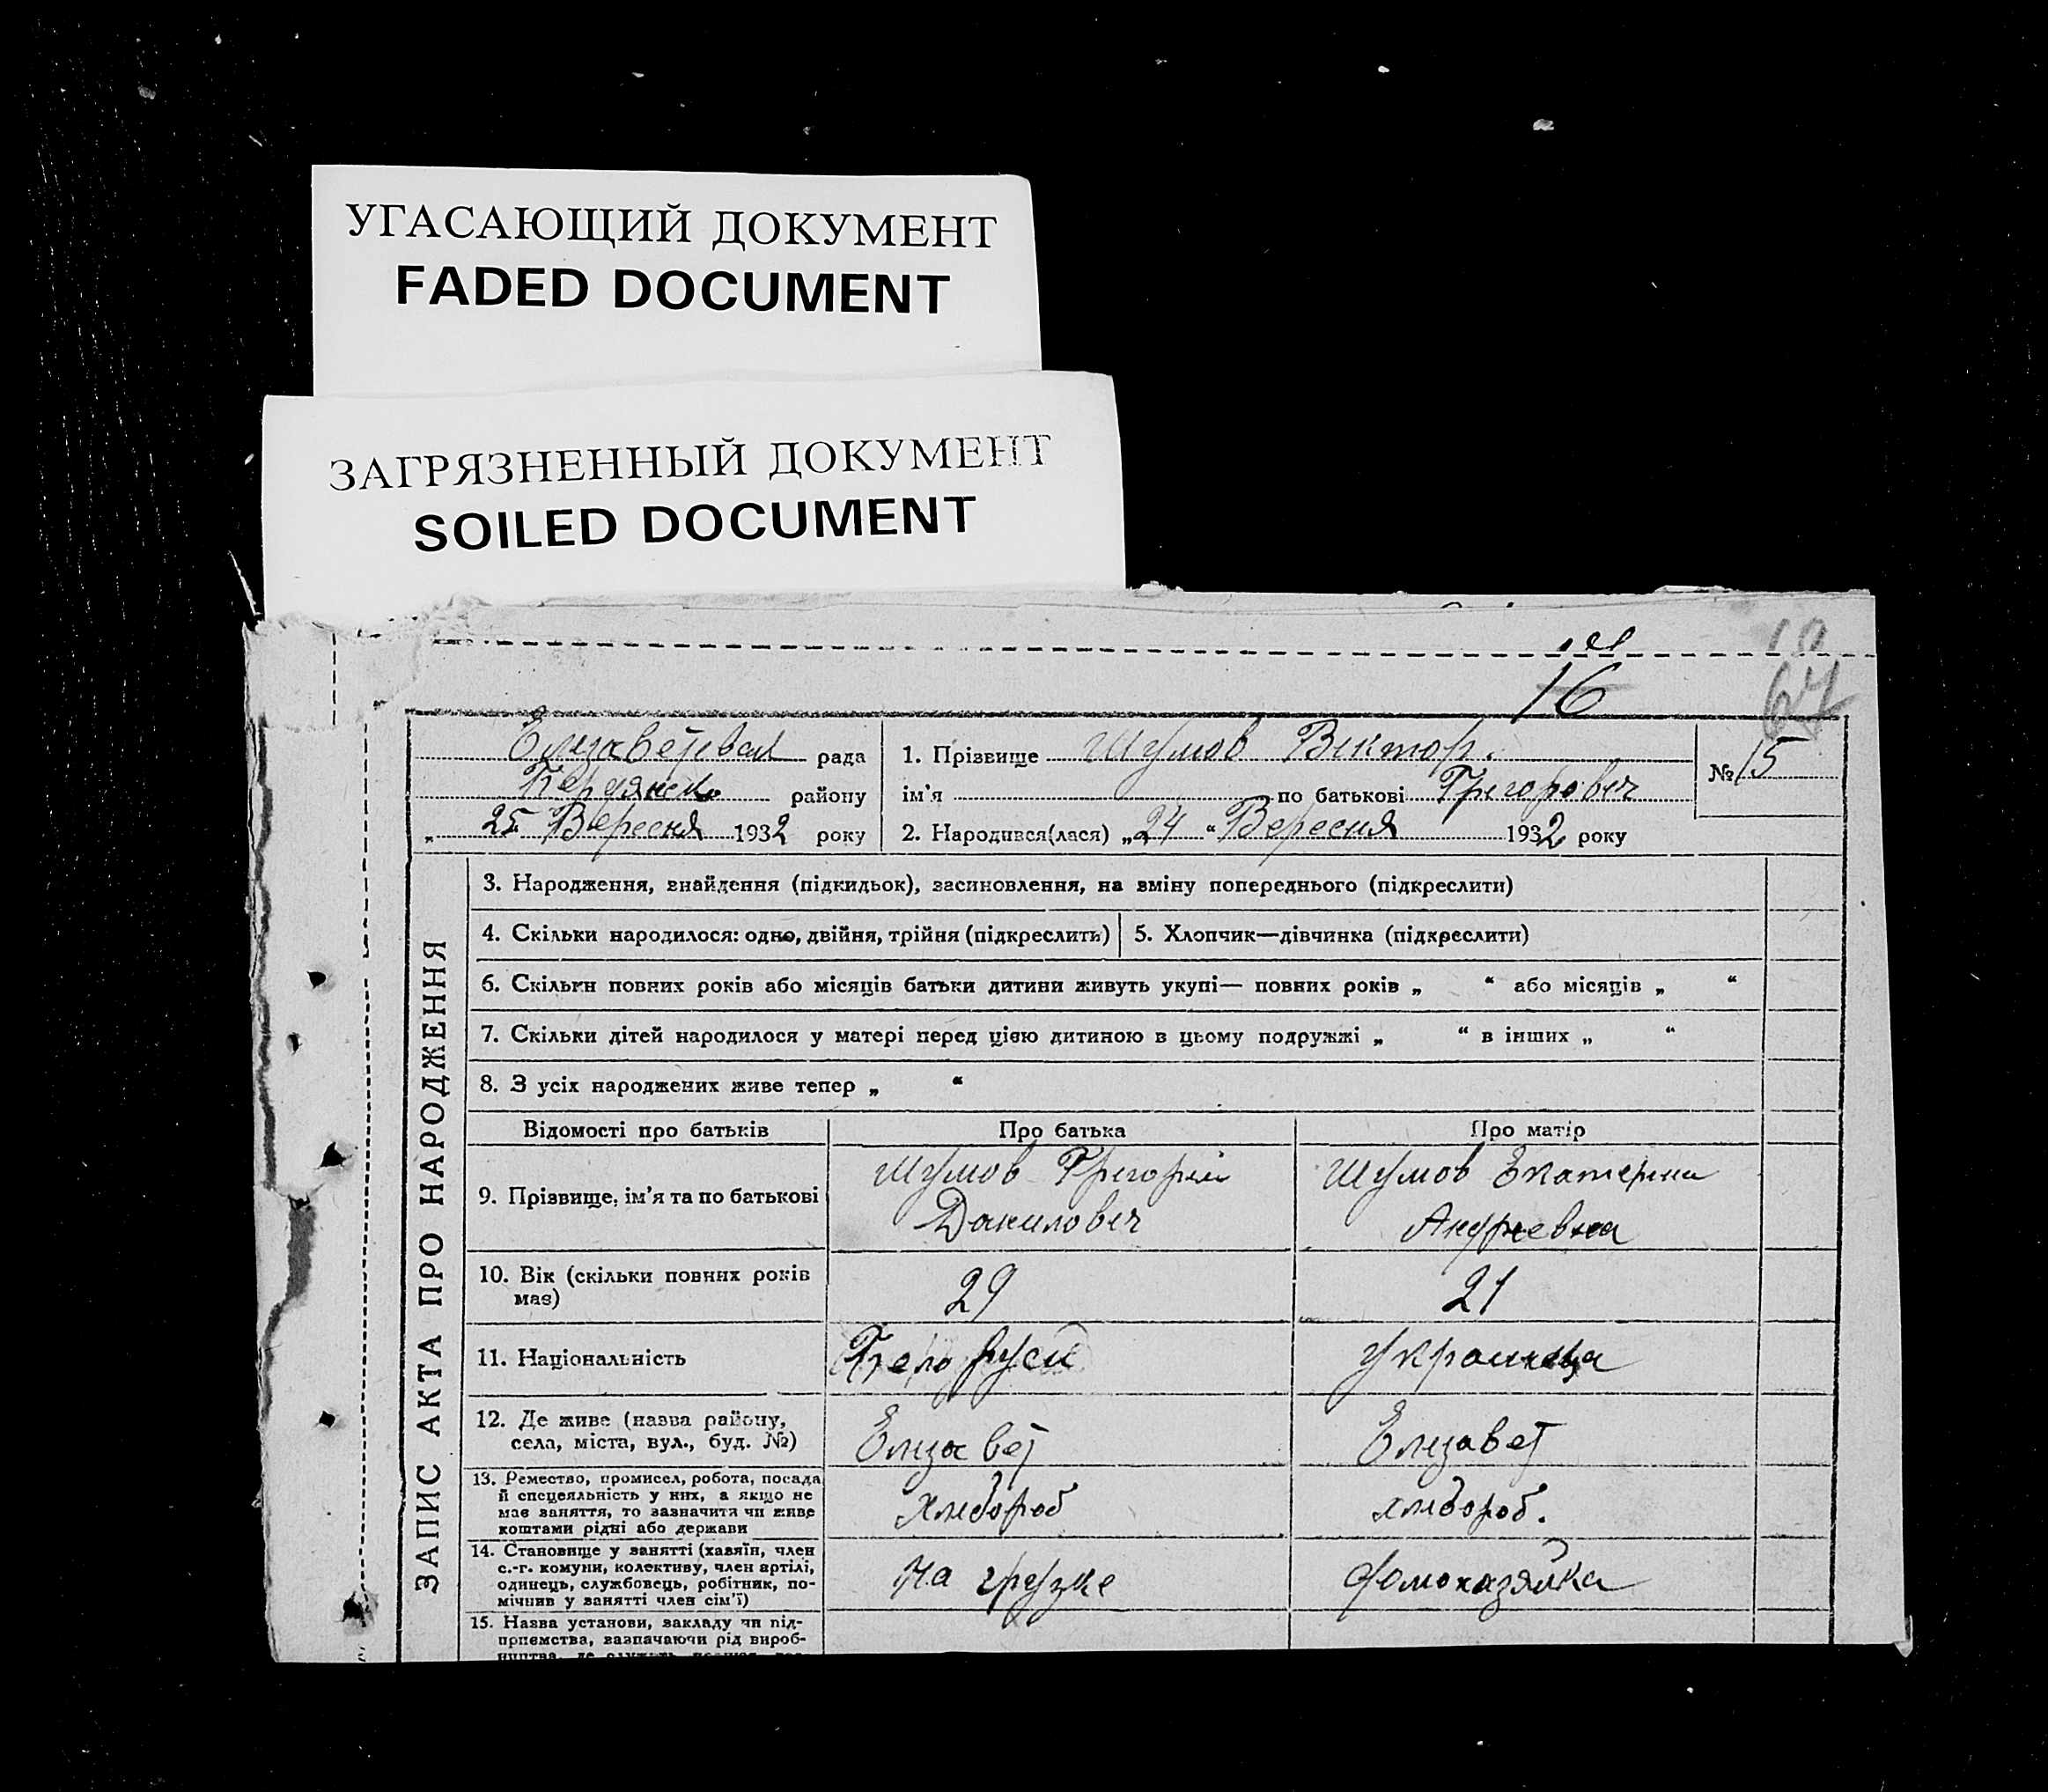 УГАСАЮЩИЙ ДОКУМЕНТ
FADED DOCUMENT
ЗАГРЯЗНЕННЫЙ ДОКУМЕНТ
SOILED DOCUMENT
16
67
рада
району
„ 25 Вересня 1932 року
1. Прізвище Шумов Віктор.
ім'я по батькові Григоровіч
2. Народився(лася) „24 “ Вересня 1932 року
№ 15
ЗАПИС АКТА ПРО НАРОДЖЕННЯ
3. Народження, знайдення (підкидьок), засиновлення, на зміну попереднього (підкреслити)
4. Скільки народилося: одно, двійня, трійня (підкреслить)
5. Хлопчик—дівчинка (підкреслити)
6. Скільки повних років або місяців батьки дитини живуть укупі— повних років „ “ або місяців „ “
7. Скільки дітей народилося у матері перед цією дитиною в цьому подружжі „ “ в інших „ “
8. З усіх народжених живе тепер „ “
Відомості про батьків
Про батька
Про матір
9. Прізвище, ім'я та по батькові
Шумов Григорій
Данилович
Шумов Екатерина
Андреевна
10. Вік (скільки повних років
має)
29
21
11. Національність
Белоруси
Украинца
12. Де живе (назва району,
села, міста, вул., буд. №)
Елизавет
Елизавет
13. Ремество, промисел, робота, посада
й спецеяльність у них, а якщо не
має заняття, то зазначити чи живе
коштами рідні або держави
хлебороб
хлебороб.
14. Становище у занятті (хазяїн, член
с.-г. комуни, колективу, член артілі,
одинець, службовець, робітник, по-
мічнив у занятті член сім'ї)
На грузке
Домохазяйка
15. Назва установи, закладу чи під-
приємства, зазначаючи рід вироб-